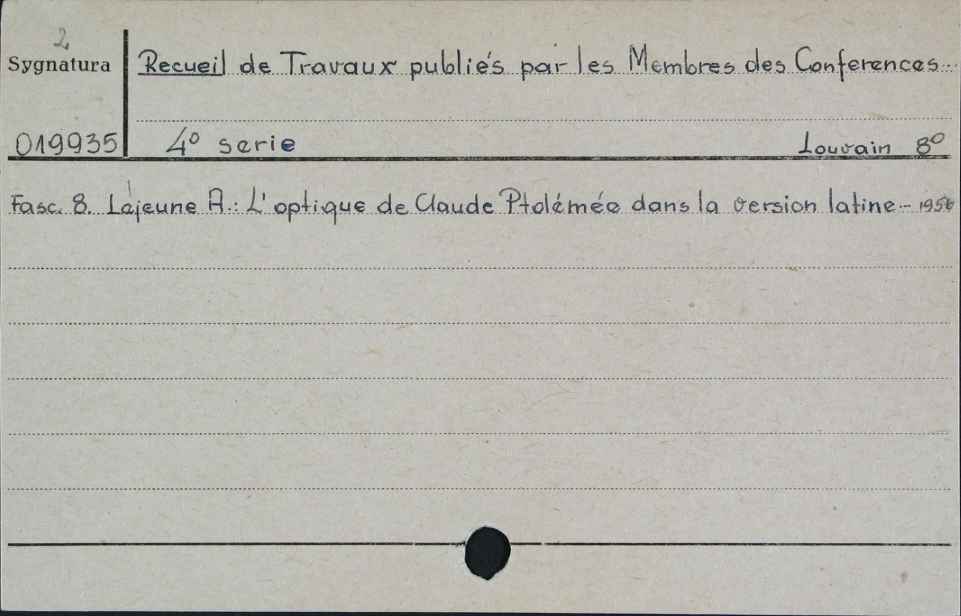 2
Sygnatura
Recueil de Travaux publiés par les Membres des Conferences...
019935
4° serie
Louvain 8°
Fasc. 8. Lejeune A.: L'optique de Claude Ptolémée dans la version latine - 1956